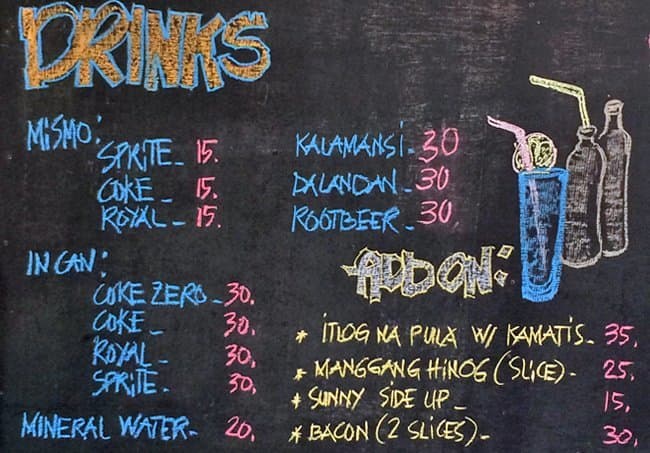 DRINKS
MISMO:
SPRITE - 15.
COKE - 15.
ROYAL - 15.
IN CAN:
COKE ZERO - 30.
COKE - 30.
ROYAL - 30.
SPRITE - 30.
MINERAL WATER - 20.
KALAMANSI - 30
DALANDAN - 30
ROOTBEER - 30.
ADD ON:
* ITLOG NA PULA W/ KAMATIS - 35.
* MANGGANG HINOG (SLICE) - 25.
* SUNNY SIDE UP - 15.
* BACON (2 SLICES) - 30.